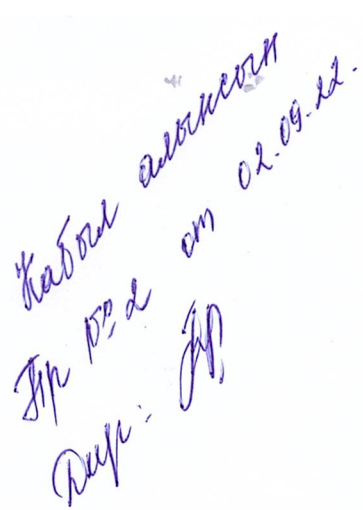 Кабыл алынсын
Пр № 2 от 02.09.22.
Дир: